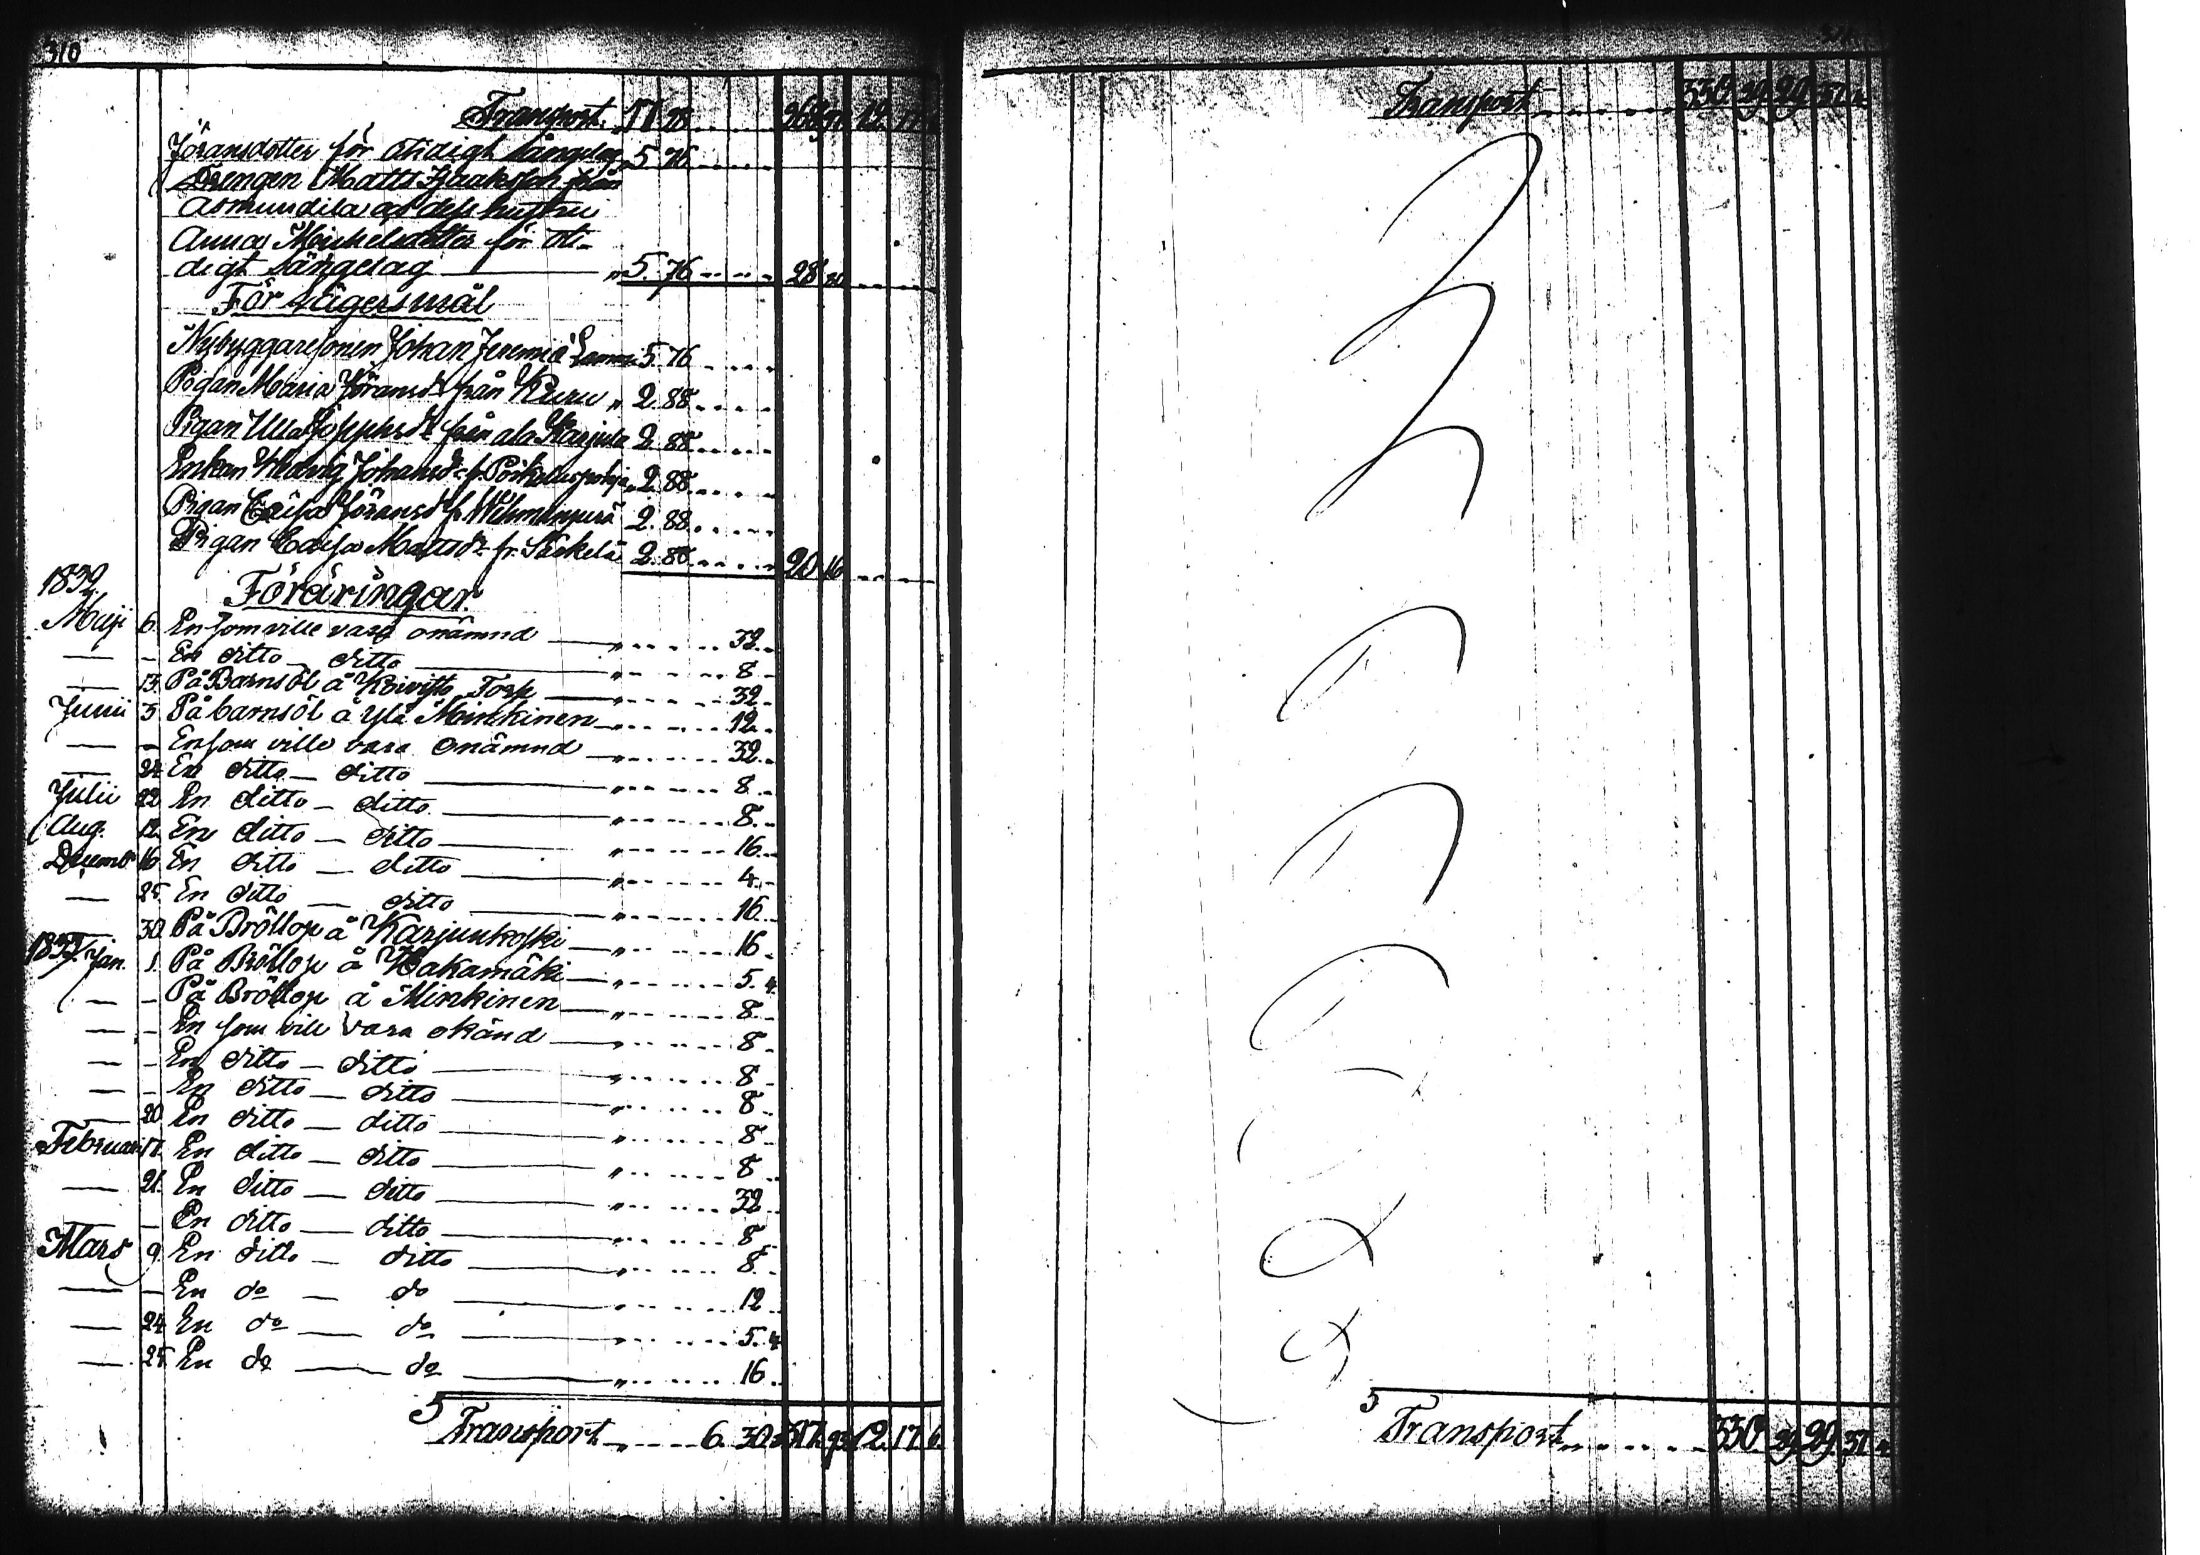 310
Transport. 17 28 12 17
Jöransdotter för otidigt sängelag 5. 76
Drengen Matts Isaaksson från
Asmundila och dess hustru
Anna Michelsdotter för oti-
digt sängelag " 5. 76 28 80
För Lägersmål
Nybyggaresonen Johan Jeremiæ 5. 76
Pigan Maria Jöransdr från Kuru " 2. 88
Pigan Ulla Josephsdr från ala Karjula 2. 88
Enkan Hedvig Johansdr fr. " 2. 88
Pigan Caisa Jöransd fr 2. 88
Pigan Caisa Mattsdr fr. Särkelä 2. 88 20 16
1832.
Föräringar.
Maji 6. En som ville vara onämnd " 32
— – En ditto – ditto " 8
— 13. På Barnsöl å Koivisto Torp 32
Junii 3 På barnsöl å Ylä Minkinen " 12
— – En som ville vara onämnd " 32
— 24 En ditto – ditto " 8
Julii 22 En ditto – ditto " 8
Aug. 12. En ditto – ditto " 16
Decemb 16 En ditto – ditto " 4
— 25 En ditto ditto " 16
— 30. På Bröllop å Karjunkoski " 16
1833 Jan. 1. På Bröllop å Hakamäki " 5. 4
— – På Bröllop å Minkinen " 8
— – En som vill vara okänd " 8
— – En ditto – ditto " 8
— – En ditto – ditto " 8
— 20 En ditto – ditto " 8
Februari 17. En ditto – ditto " 8
— 21. En ditto – ditto " 32
— – En ditto – ditto " 8
Mars 9. En ditto – ditto " 8
— – En do – do " 12
— 24 En do – do " 5. 4
— 25 En do – do " 16
5
Transport " 6. 30. 317. 93 12. 17. 6
Transport 330 29 29 37
5
Transport 330 29 29. 37